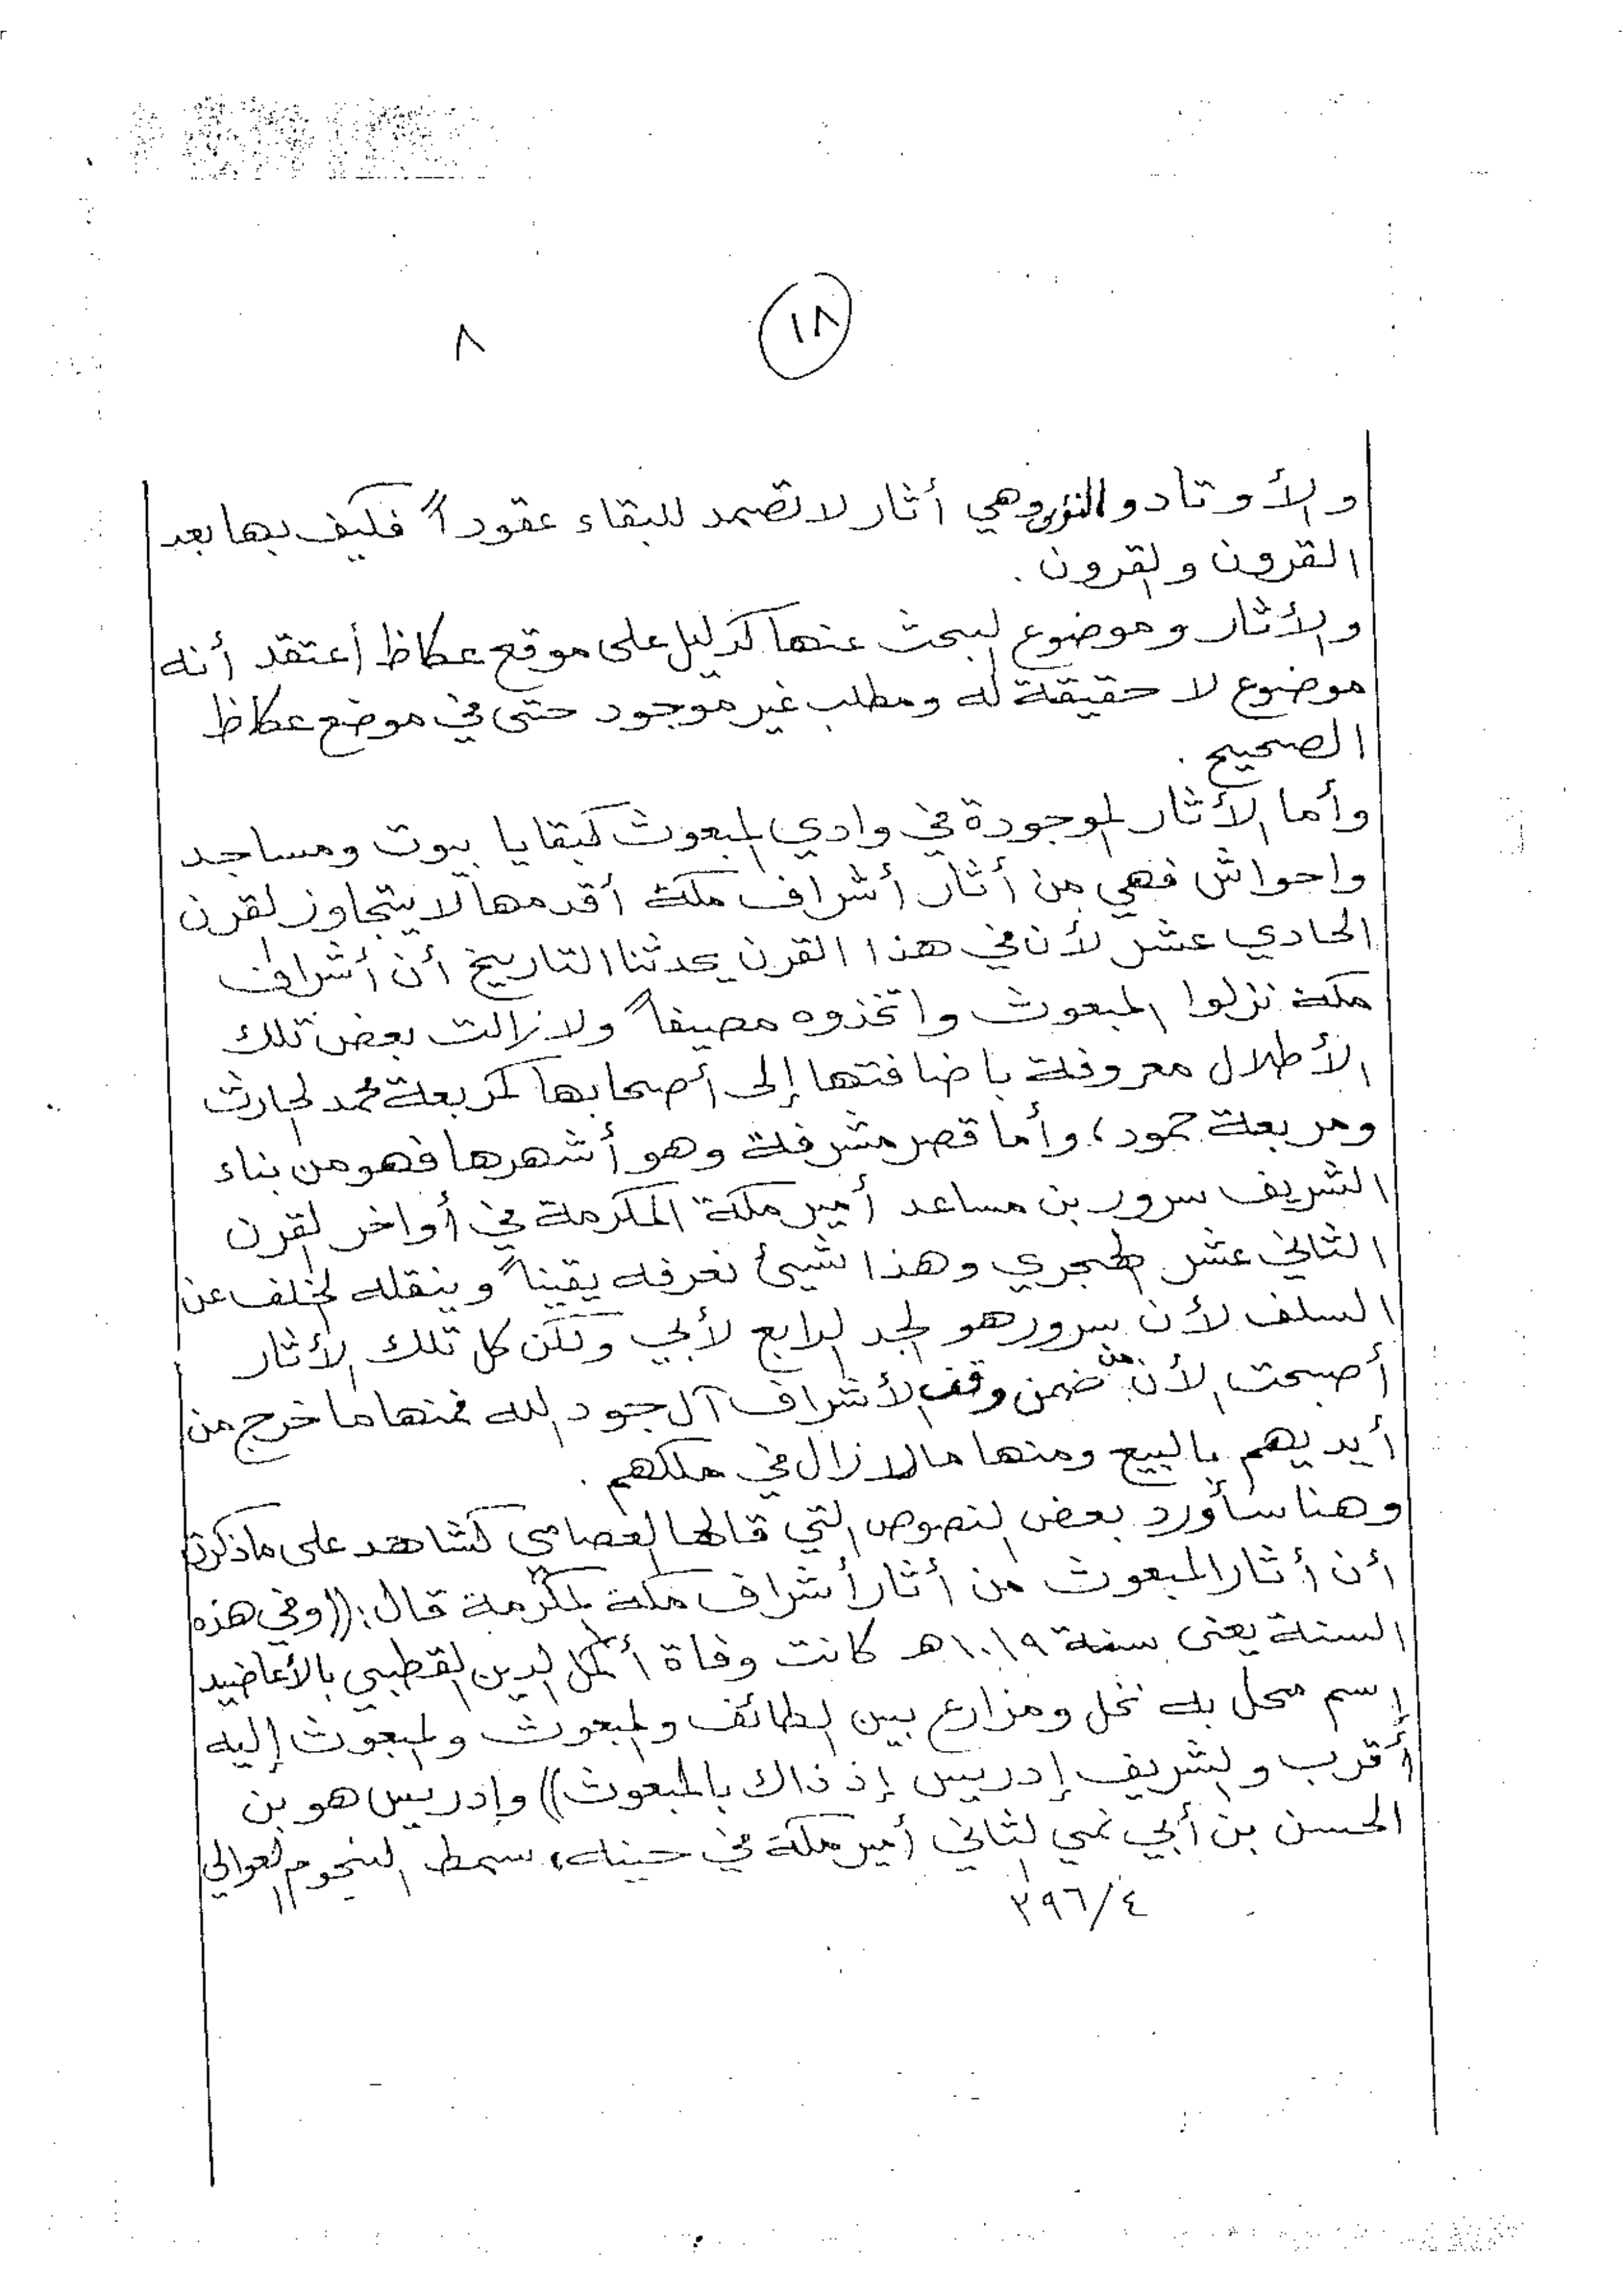 ١٨
٨
والأوتاد و وهي أثار لا تصمد للبقاء عقوداً فكيف بها بعد
القرون والقرون .
والأثار وموضوع البحث عنها كدليل على موقع عكاظ أعتقد أنه
موضوع لا حقيقة له ومطلب غير موجود حتى في موضع عكاظ
الصحيح .
وأما الأثار الموجودة في وادي المبعوث كبقايا بيوت ومساجد
واحواش فهي من أثار أشراف مكة أقدمها لا يتجاوز القرن
الحادي عشر لأن في هذا القرن يحدثنا التاريخ أن أشراف
مكة نزلوا المبعوث واتخذوه مصيفاً ولا زالت بعض تلك
الأطلال معروفة باضافتها إلى أصحابها كمربعة محمد الحارث
ومربعة حمود، وأما قصر مشرفة وهو أشهرها فهو من بناء
الشريف سرور بن مساعد أمير مكة المكرمة في أواخر القرن
الثاني عشر الهجري وهذا شيئ نعرفه يقيناً وينقله الخلف عن
السلف لأن سرور هو الجد الرابع لأبي ولكن كل تلك الأثار
أصبحت الأن من ضمن وقف الأشراف آل جود الله فمنها ما خرج من
أيديهم بالبيع ومنها مالازال في ملكهم .
وهنا سأورد بعض النصوص التي قالها العصامي كشاهد على ماذكرت
أن أثار المبعوث من أثار أشراف مكة المكرمة قال: ((وفي هذه
السنة يعني سنة ١٠١٩هـ كانت وفاة أكمل الدين القطبي بالأعاضيد
إسم محل به نخل ومزارع بين الطائف والمبعوث والمبعوث إليه
أقرب والشريف إدريس إذ ذاك بالمبعوث)) وإدريس هو بن
الحسن بن أبي نمي الثاني أمير مكة في حينه، سمط النجوم العوالي
٣٩٦/٤